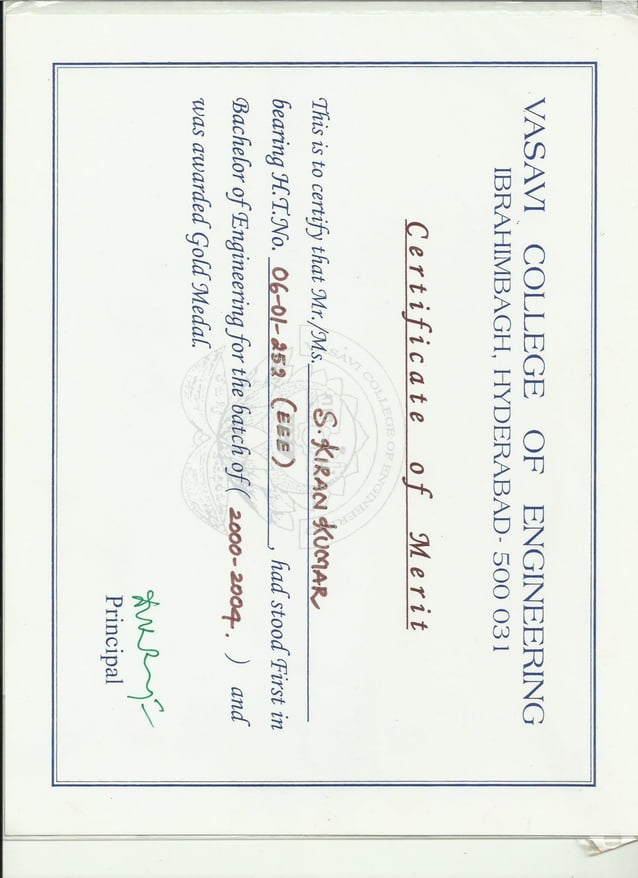 VASAVI COLLEGE OF ENGINEERING
IBRAHIMBAGH, HYDERABAD- 500 031
Certificate of Merit
This is to certify that Mr./Ms. S. KIRAN KUMAR
bearing H.T.No. 06-01-252 (EEE), had stood First in
Bachelor of Engineering for the batch of ( 2000-2004. ) and
was awarded Gold Medal.
VASAVI COLLEGE OF ENGINEER
Principal